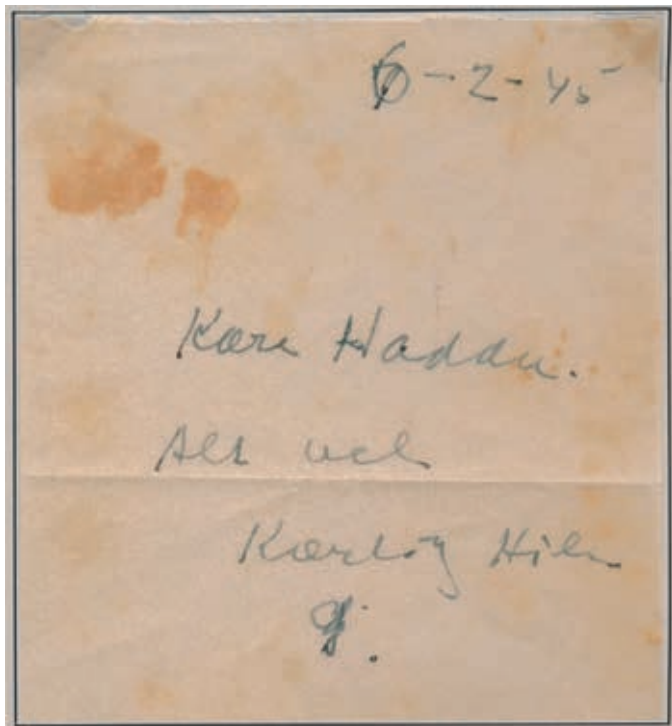 6-2-45
Kære Hadda.
Alt vel
Kærlig Hilsen